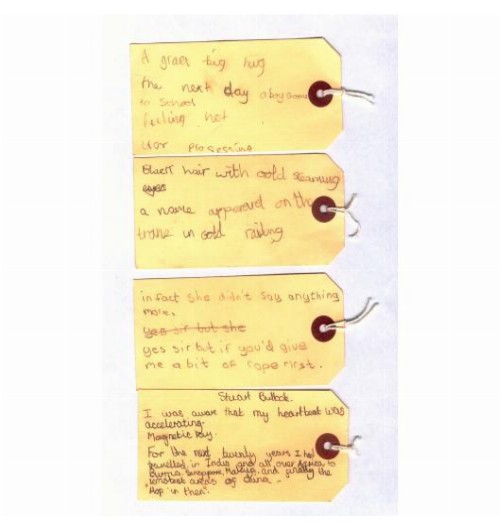 A great big hug
the next day a boy came
to School
feeling hot
War
Black hair with cold steaming
eyes
a name appeared on the
trane in cold railing
in fact she didn't say anything
more.
yes sir but she
yes sir but if you'd give
me a bit of rope first.
Stuart Bullock.
I was aware that my heartbeat was
accelerating.
Magnetic Ray.
For the next twenty years I had
travelled in India and all over Africa to
Burma, Singapore, Malaya, and finally the
remotest areas of China -
Hop 'in then".